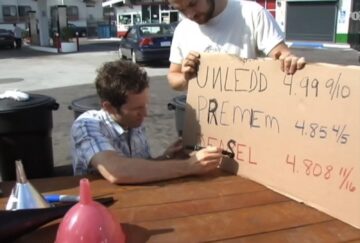 UNLEDD 4.99 9/10
PREMEM 4.85 4/5
DEISEL 4.808 11/16